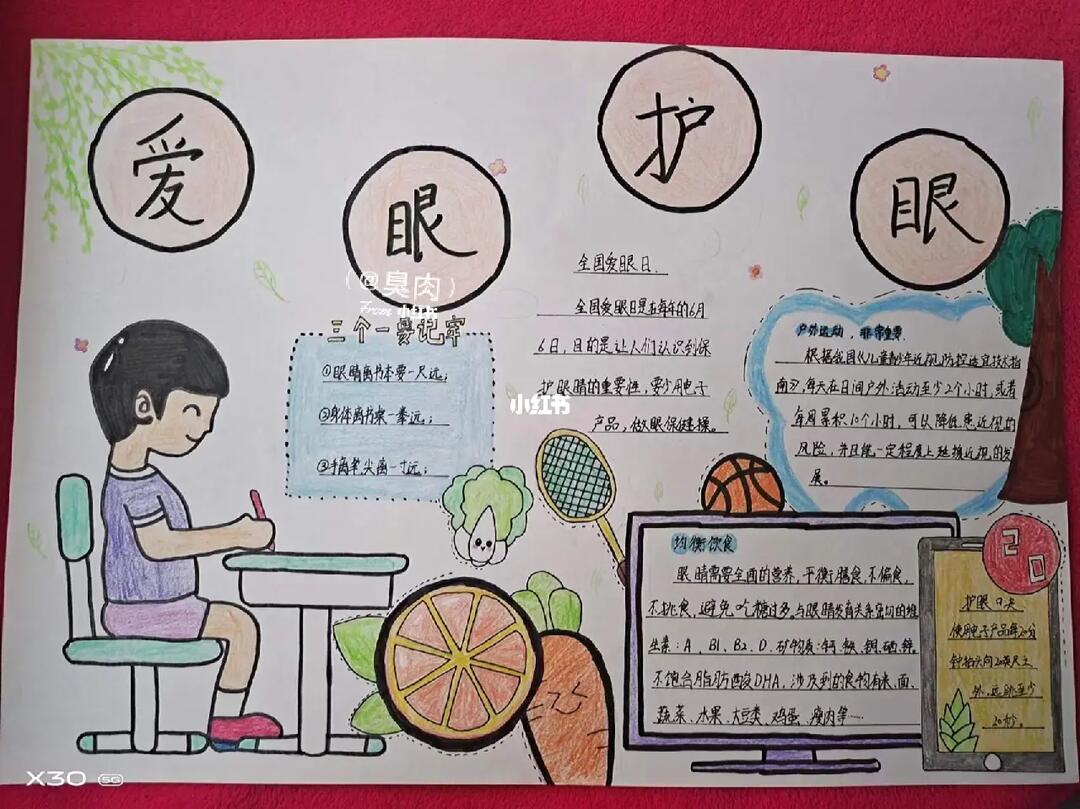 爱
眼
护
眼
@臭肉
From 小红书
三个一要记牢
①眼睛离书本要一尺远；
②身体离书桌一拳远；
③手离笔尖离一寸远；
小红书
全国爱眼日.
全国爱眼日是在每年的6月
6日，目的是让人们认识到保
护眼睛的重要性，要少用电子
产品，做眼保健操。
户外运动，非常重要.
根据我国《儿童青少年近视防控适宜技术指
南》，每天在日间户外活动至少2个小时，或者
每周累积10个小时，可以降低患近视的
风险，并且能一定程度上延缓近视的发
展。
均衡饮食
眼睛需要全面的营养，平衡膳食，不偏食，
不挑食，避免吃糖过多。与眼睛发育关系密切的维
生素：A、B1、B2、D.矿物质：钙、铁、铜、硒、锌。
不饱合脂肪酸DHA，涉及到的食物有米、面、
蔬菜、水果、大豆类、鸡蛋、瘦肉等……
20
护眼口诀
使用电子产品每20分
钟抬头向20英尺之
外，远眺至少
20秒。
X30 5G